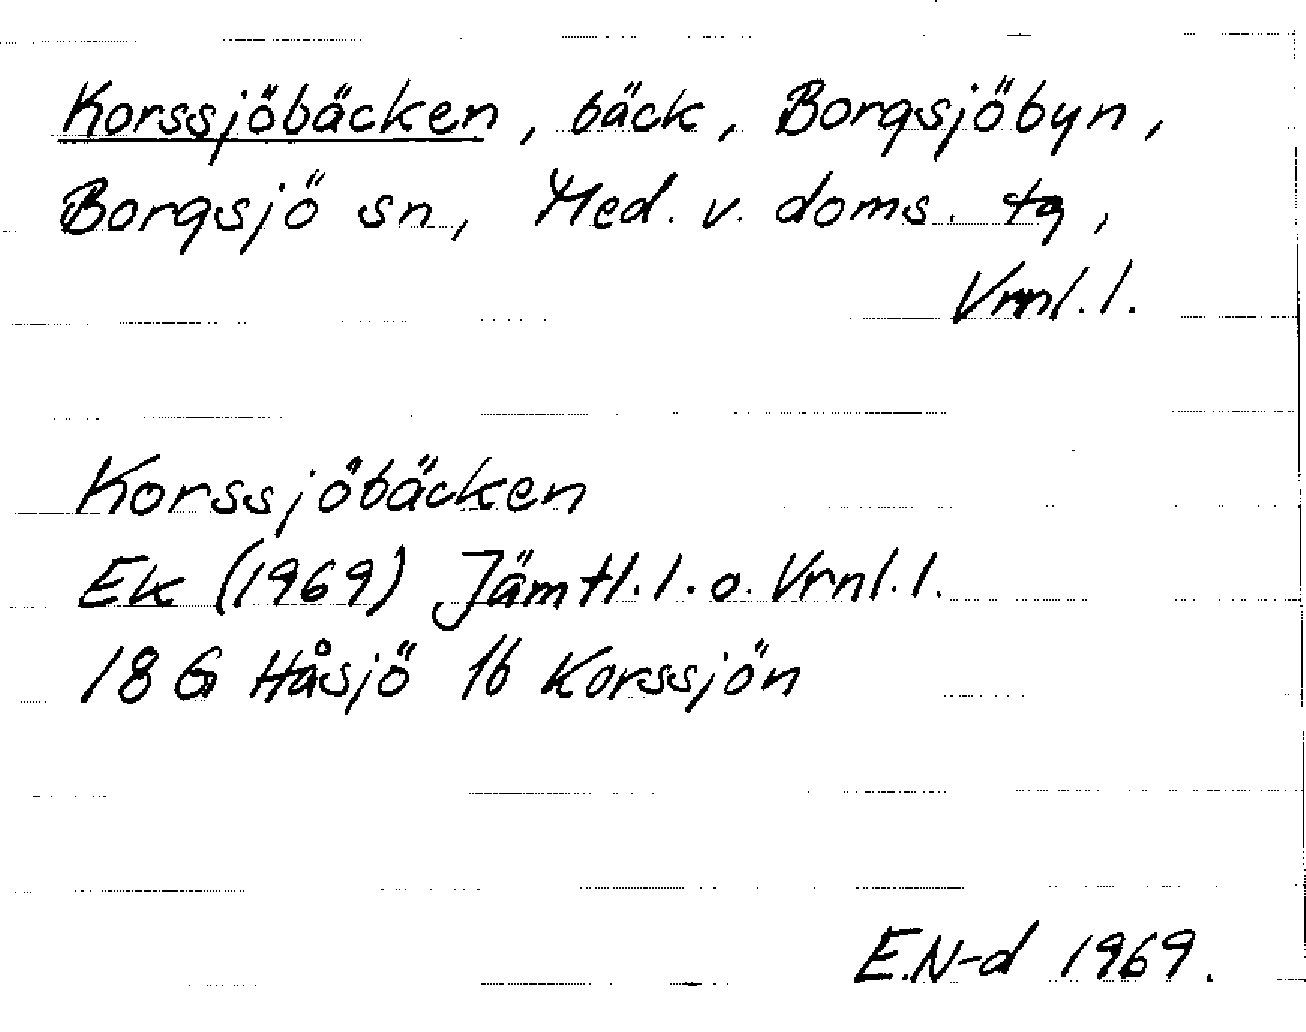 Korssjöbäcken, bäck, Borgsjöbyn,
Borgsjö sn, Med. v. doms. tg,
Vrnl. l.
Korssjöbäcken
Ek (1969) Jämtl. l. o. Vrnl. l.
18 G Håsjö 1b Korssjön
E.N-d 1969.